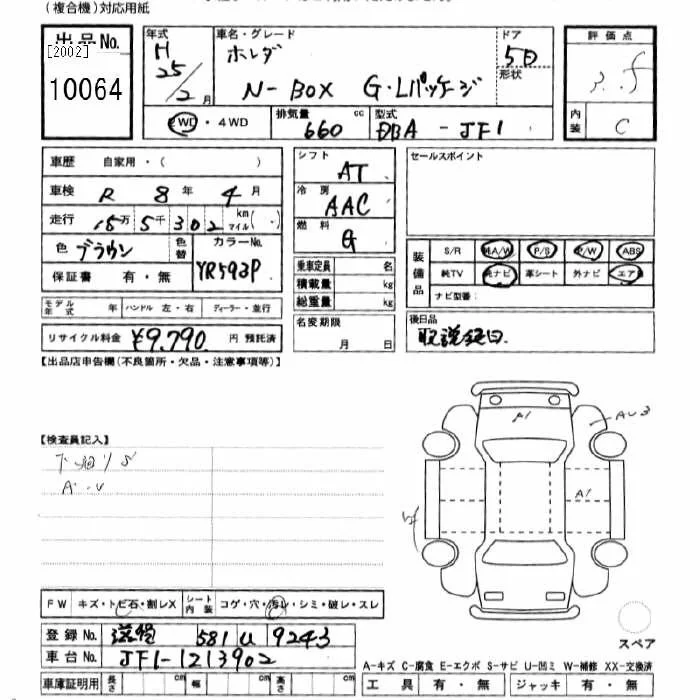 (複合機)対応用紙
出品No.
[2002]
10064
年式
H
25/2月
車名・グレード
ホンダ
N-BOX G・Lパッケージ
ドア
5D
形状
評価点
内装
C
2WD・4WD
排気量
660 cc
型式
DBA-JF1
車歴 自家用・( )
車検 R 8年 4月
走行 15万 5千 302 km マイル( )
色 ブラウン
色替
カラーNo.
YR593P
保証書 有・無
モデル年式 年 ハンドル 左・右 ディーラー・並行
リサイクル料金 ¥9,790 円 預託済
シフト AT
冷房 AAC
燃料 G
乗車定員 名
積載量 kg
総重量 kg
名変期限
月 日
セールスポイント
装備品
S/R A/W P/S P/W ABS
純TV 純ナビ 革シート 外ナビ エアB
ナビ型番:
後日品
取説後日
【出品店申告欄(不良箇所・欠品・注意事項等)】
【検査員記入】
下廻りS
A・U
A1
AU3
A1
FW キズ・トビ石・割レX
シート内装 コゲ・穴・汚レ・シミ・破レ・スレ
登録No. 滋賀 581 U 9243
車台No. JF1-1213902
車庫証明用 長さ cm 幅 cm 高さ cm
スペア
A-キズ C-腐食 E-エクボ S-サビ U-凹ミ W-補修 XX-交換済
工具 有・無 ジャッキ 有・無